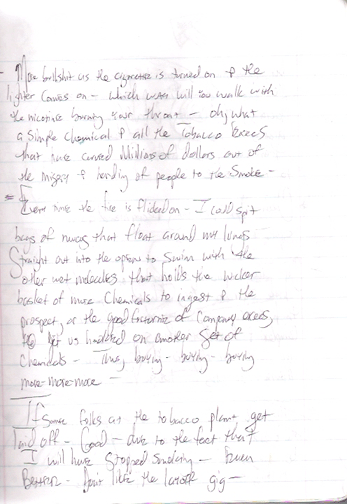 - More bullshit as the cigarette is turned on & the
lighter comes on - which way will you walk with
the nicotine burning your throat - oh, what
a simple chemical & all the Tobacco Execs
that have carved Millions of dollars out of
the misery & handing of people to the smoke -
Every time the fire is flicked on - I could spit
bags of mucus that float around my lungs
Straight out into the open to Swim with the
other wet molecules that holds the
basket of more Chemicals to ingest & the
prospect, or the good fortune of Company execs,
to get us hooked on another set of
Chemicals - Thus, buying - buying - buying
more-more-more -
If some folks at the tobacco plant get
laid off - Good - due to the fact that
I will have stopped smoking - Even
Better - Don't like the gig -